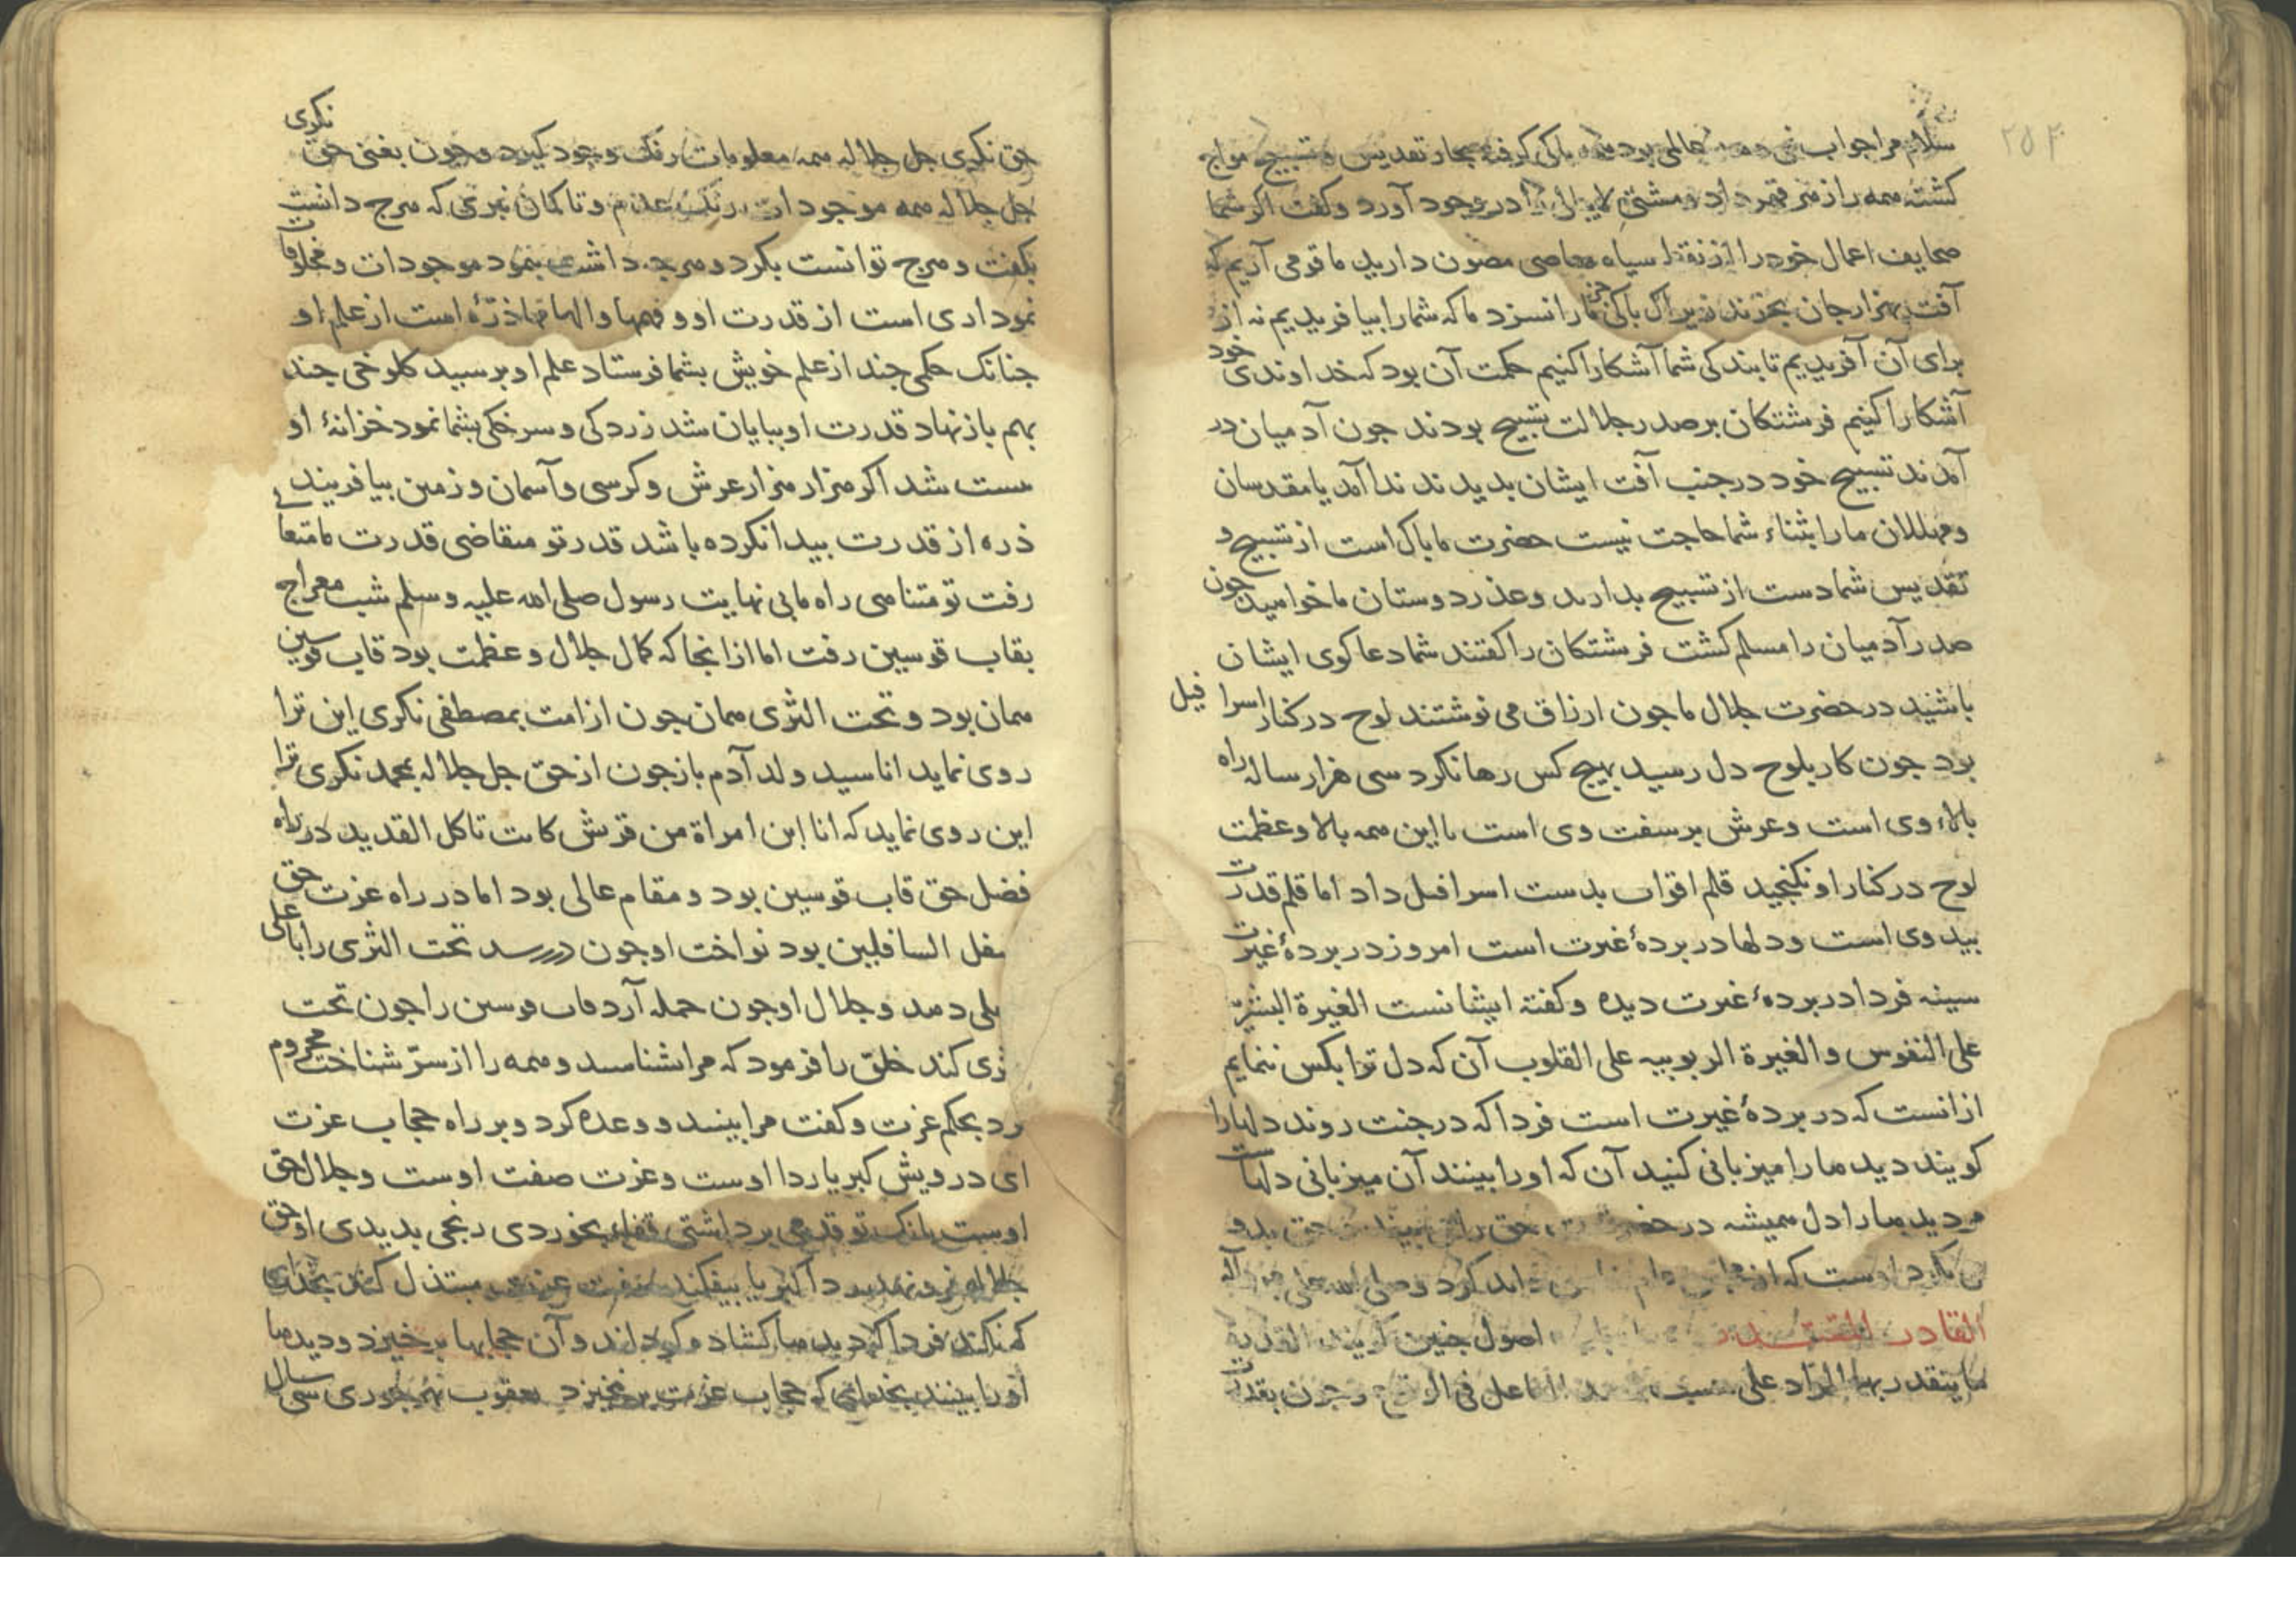 سلام مرا جواب عالمی بود پاکی گرفته بحار تقدیس و تسبیح مواج
کشته همه را از سر قهر داد و مشتی لاابالی را در وجود آورد و کفت اکر شما
صحایف اعمال خود را از نقط سیاه معاصی مصون دارید ما قومی آریم که
آفت بهزار جان بخرند زیراک باکی جز ما را نسزد ماکه شما را بیافریدیم نه از
برای آن آفریدیم تا بندکی شما آشکارا کنیم حکمت آن بود که خداوندی خود
آشکارا کنیم فرشتکان بر صدر جلالت تسبیح بودند جون آدمیان در
آمدند تسبیح خود در جنب آفت ایشان بدیدند ندا آمد یا مقدسان
و مهللان ما را بثناء شما حاجت نیست حضرت ما باک است از تسبیح و
تقدیس شما دست از تسبیح بدارید و عذر دوستان ما خواهید جون
صدر آدمیان را مسلم کشت فرشتکان را کفتند شما دعا کوی ایشان
باشید در حضرت جلال ما جون ارزاق می نوشتند لوح در کنار اسرافیل
بود جون کار بلوح دل رسید بهیج کس رها نکرد سی هزار ساله راه
بالاء وی است و عرش بر سفت وی است با این همه بالا و عظمت
لوح در کنار او نکنجید قلم اقوات بدست اسرافیل داد اما قلم قدرت
بید وی است و دلها در بردهٔ غیرت است امروز در بردهٔ غیرت
سینه فردا در بردهٔ غیرت دیده و کفتهٔ ایشانست الغیرة البشریّة
علی النفوس و الغیرة الربوبیه علی القلوب آن که دل ترا بکس ننمایم
ازانست که در بردهٔ غیرت است فردا که در جنت روند دلها را
کویند دیدها را میزبانی کنید آن که او را بینند آن میزبانی دلهاست
مر دیدها را دل همیشه در حضرت حق حق بدو
کرد و صلی الله علی محمد و آله
القادر المقتدر اصول جنین کویند القدرة
ما یتقدر بها المراد علی حسب الفاعل فی الوقوع و جون بقدرت
حق نکری جل جلاله همه معلومات رنک وجود کیرد و جون بغنی حق نکری
جل جلاله همه موجودات رنک عدم و تا کمان نبری که هرج دانست
بکفت و هرج توانست بکرد و هرجه داشت بنمود موجودات و مخلوقات
نموداری است از قدرت او و فهمها و الهامها ذرّهٔ است از علم او
جنانک حکمی جند از علم خویش بشما فرستاد علم او برسید کلوخی جند
بهم باز نهاد قدرت او ببایان شد زردکی و سرخکی بشما نمود خزانهٔ او
هست شد اکر هزار هزار عرش و کرسی و آسمان و زمین بیافریند
ذره از قدرت بیدا نکرده باشد قدر تو متقاضی قدرت ما متعالی
رفت تو متناهی راه ما بی نهایت رسول صلی الله علیه و سلم شب معراج
بقاب قوسین رفت اما از انجا که کمال جلال و عظمت بود قاب قوسین
همان بود و تحت الثری همان جون از امت بمصطفی نکری این ترا
روی نماید انا سید ولد آدم باز جون از حق جل جلاله بمحمد نکری ترا
این روی نماید که انا ابن امراة من قریش کانت تاکل القدید در راه
فضل حق قاب قوسین بود و مقام عالی بود اما در راه عزت حق
سفل السافلین بود نواخت او جون در رسد تحت الثری را با علی
علی دهد و جلال او جون حمله آرد قاب قوسین را جون تحت
ثری کند خلق را فرمود که مرا شناسید و همه را از سرّ شناخت محروم
کرد بحکم عزت و کفت مرا بینید و وعده کرد و بر راه حجاب عزت
ای درویش کبریا ردا اوست و عزت صفت اوست و جلال حق
اوست بانک تو قدمی برداشتی قفاء بخوردی رنجی بدیدی او حق
جلاله فرو نهد ردا کبریا بیفکند صفت عزت مبتذل کند بخدای
که نکند فردا که دیدها کشاده کردانند و آن حجابها برخیزد و دیدها
او را بینند بخدای که حجاب عزت برنخیزد یعقوب مهجوری سی سال